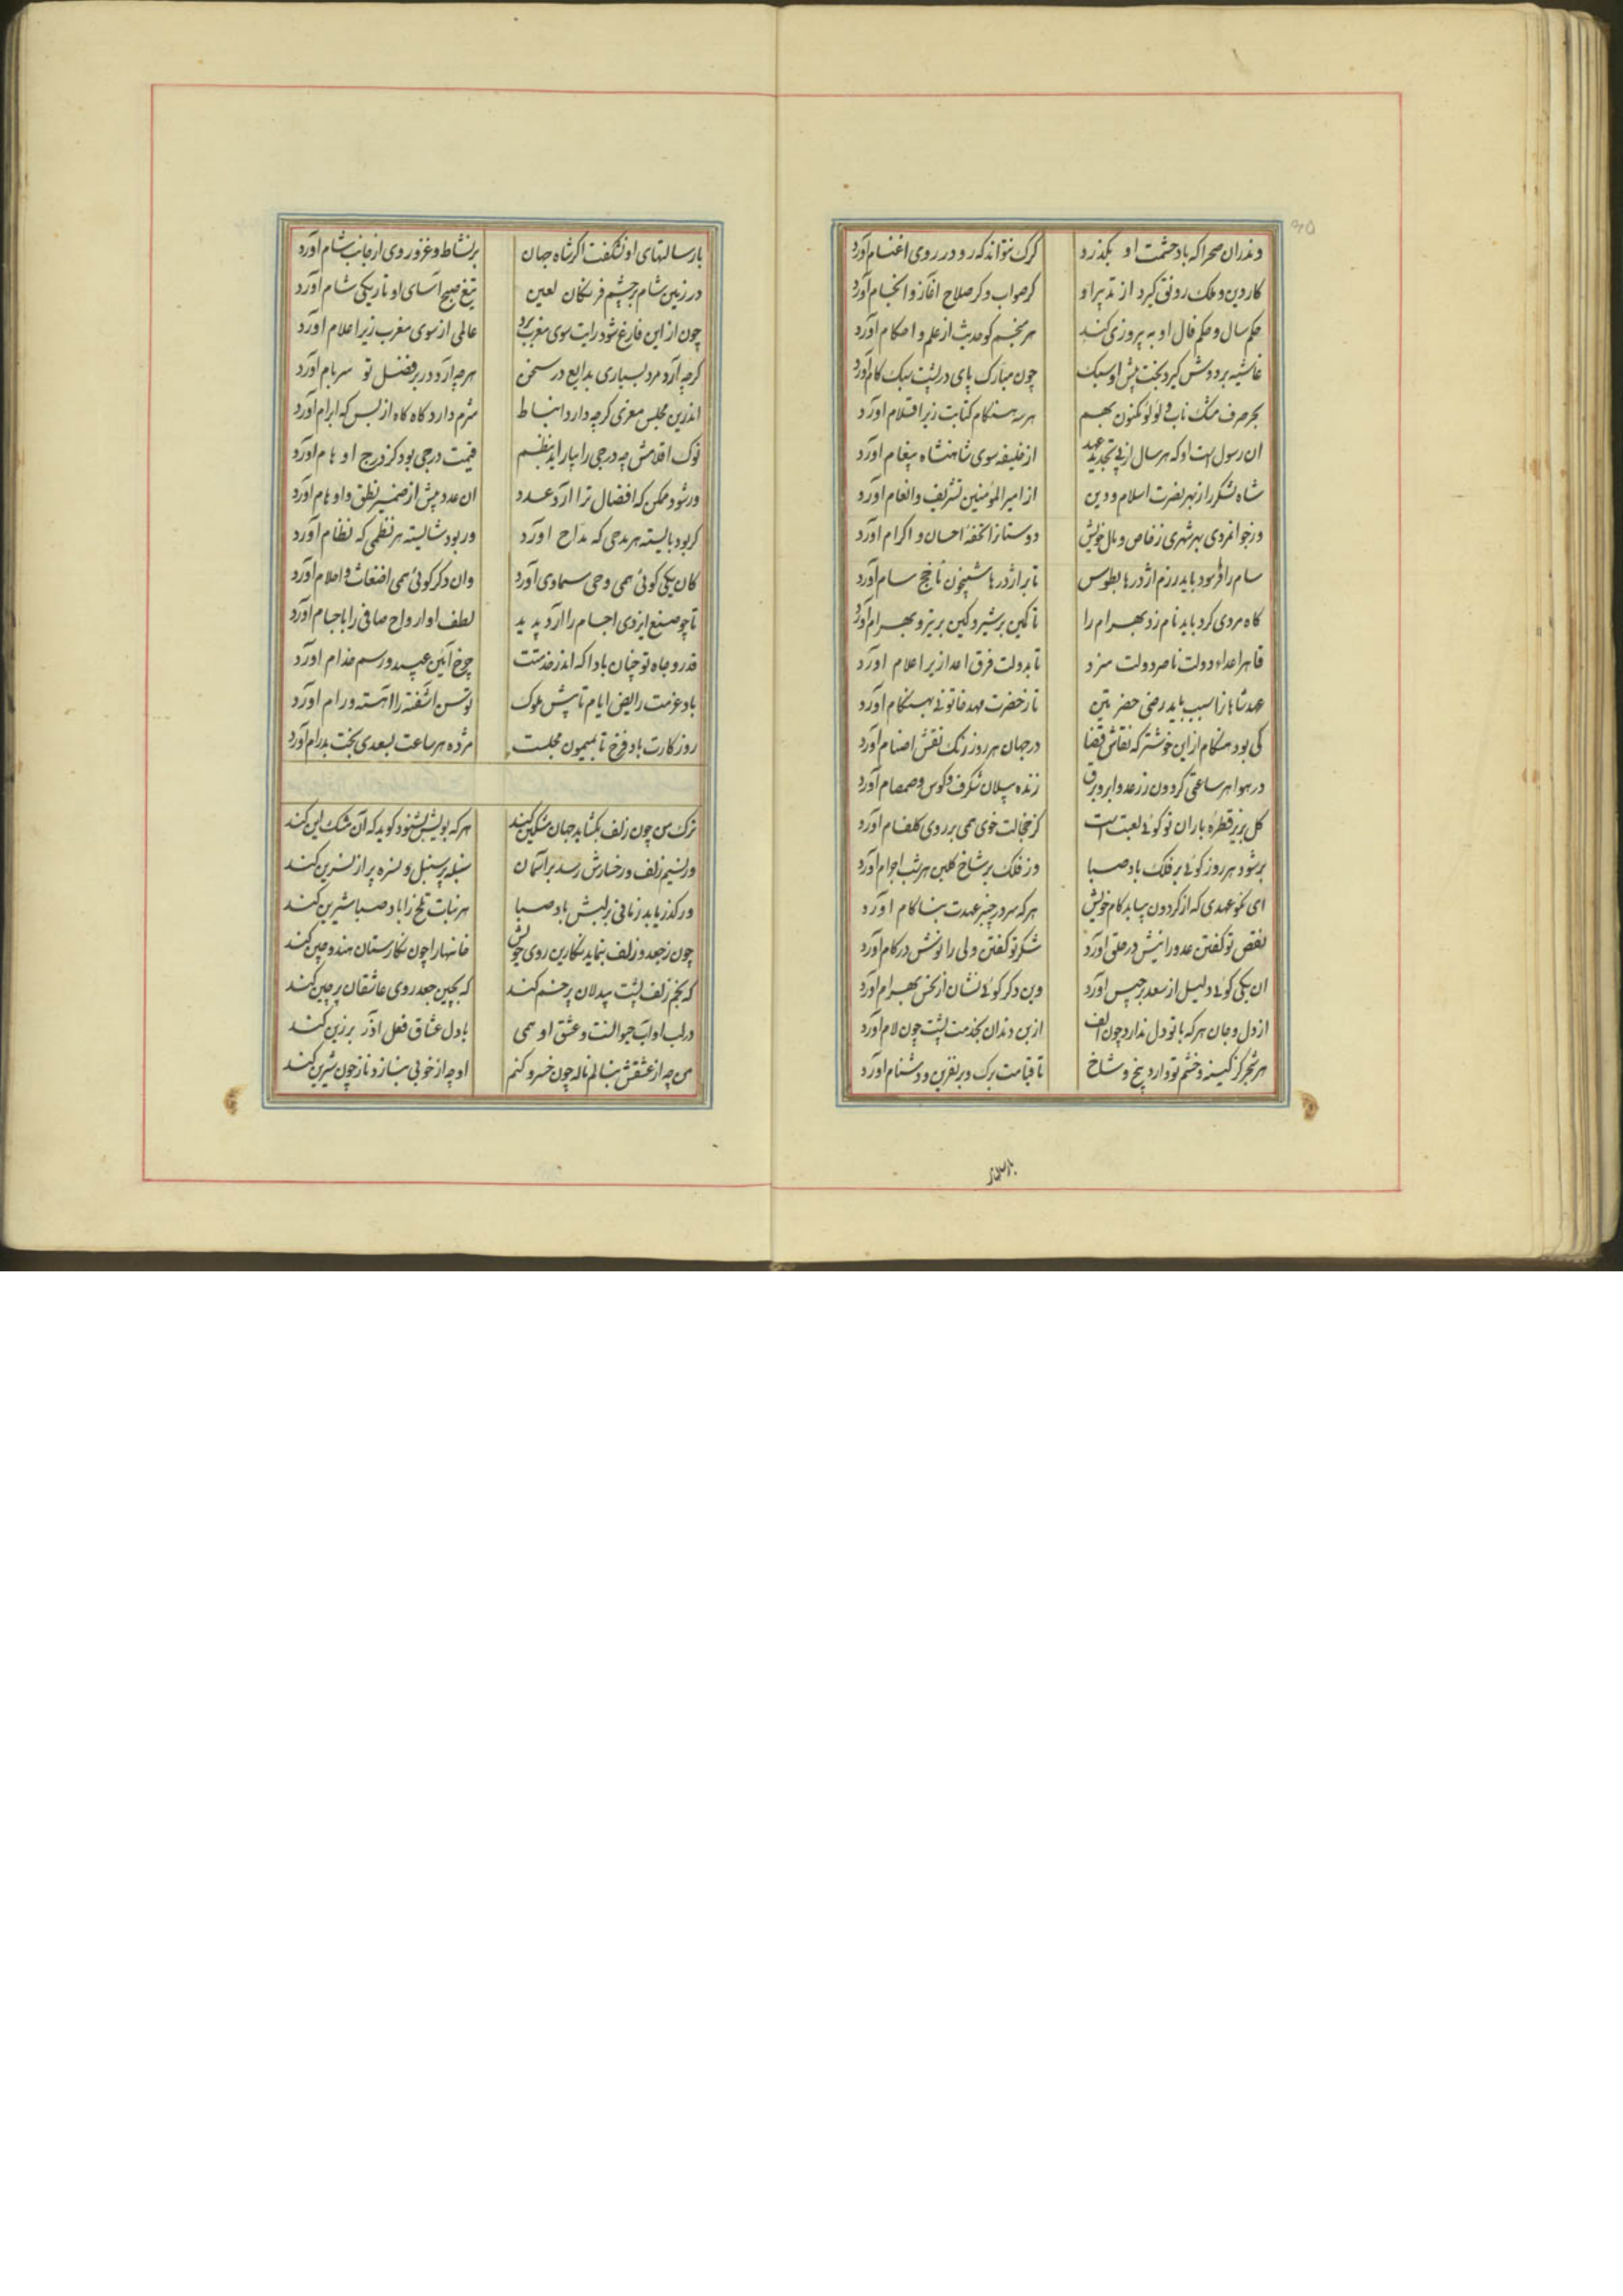 وندران صحرا که باد حشمت او بگذرد کرک نتواند که رو در روی اغنام آورد
کار دین و ملک رونق گیرد از تدبیر او کر صواب و کر صلاح آغاز و انجام آورد
حکم سال و حکم فال او به پیروزی کند هر منجم کو حدیث از علم و احکام آورد
غاشیه بر دوش گیرد بخت پیش او سبک چون مبارک پای در پشت سبک کام آورد
بحر صرف مشک ناب و لؤلؤ مکنون بهم هر هنگام کتابت زیر اقلام آورد
ان رسول است او که هر سال از پی تجدید عهد از خلیفه سوی شاهنشاه پیغام آورد
شاه لشکر را ز بهر نصرت اسلام و دین از امیر المؤمنین تشریف و انعام آورد
وز جوانمردی بهر شهری ز خاص و مال خویش دوستانرا تحفه احسان و اکرام آورد
سام را فرمود باید رزم اژدرها بطوس تا بر اژدرها شبیخون ناخج سام آورد
کاه مردی کرد باید نام زد بهرام را تا کمین بر شیر و کین بر ببر و بهرام آورد
قاهر اعداء دولت ناصر دولت سزد تا بدولت فرق اعدا زیر اعلام آورد
عهد شاهانرا سبب باید رضی حضرتین تا ز حضرت مهد خاتونی بهنگام آورد
کی بود هنگام از این خوشتر که نقاش قضا در جهان هر روز رنگ نقش اصنام آورد
در هوا هر ساعتی گردون ز رعد و ابر و برق زنده پیلان شگرف و کوس و صمصام آورد
کل بزیر قطرهٔ باران تو کوئی لعبت است کز خجالت خوی همی بر روی گلفام آورد
بر شود هر روز کوئی بر فلک باد صبا وز فلک بر شاخ گلبن هر شب اجرام آورد
ای نکو عهدی که از گردون بیابد کام خویش هر که سر در چنبر عهدت بناکام آورد
نقص تو گفتن عدو را نیش در حلق آورد شکر تو گفتن ولی را نوش در کام آورد
ان یکی کوئی دلیل از سعد برجیس آورد وین دکر کوئی نشان از نحس بهرام آورد
از دل و جان هر که با تو دل ندارد چون الف از بن دندان بخدمت پشت چون لام آورد
هر شجر کز کینه و خشم تو دارد بیخ و شاخ تا قیامت برک و بر نفرین و دشنام آورد
با رسالتهای او نشگفت اکر شاه جهان بر نشاط و غزو روی از جانب شام آورد
در زمین شام بر چشم فرنگان لعین تیغ صبح آسای او تاریکی شام آورد
چون از این فارغ شود رایت سوی مغرب برد عالمی از سوی مغرب زیر اعلام آورد
کرچه آرد مرد بسیاری بدایع در سخن هر چه آرد در بر فضل تو سرسام آورد
اندرین مجلس معزی کرچه دارد انبساط شرم دارد کاه کاه از بس که ابرام آورد
نوک اقلامش چه درجی را بیاراید بنظم قیمت درجی بود کز درج اوهام آورد
ور شود ممکن که افضال ترا آرد عدد ان عدد بیش از ضمیر نطق و اوهام آورد
کر بود بایسته هر مدحی که مداح اورد ور بود شایسته هر نظمی که نظام آورد
کان یکی کوئی همی وحی سماوی آورد وان دکر کوئی همی اضغاث و احلام آورد
تا چو صنع ایزدی اجسام را آرد پدید لطف او ارواح صافی را باجسام آورد
قدر و جاه تو چنان بادا که اندر خدمتت چرخ آئین عبید و رسم خدام اورد
باد عزمت رایض ایام تا پیش ملوک توسن آشفته را آهسته و رام آورد
روزگارت باد فرخ تا بمیمون مجلست مژده هر ساعت بسعدی بخت پدرام آورد
ترک من چون زلف بگشاید جهان مشکین کند هر که بویش بشنود کوید که آن مشک این کند
ور نسیم زلف و رخسارش رسد بر آسمان سنبله پر سنبل و نسره پر از نسرین کند
ور گذر یابد زمانی بر لبش باد صبا هر نبات تلخ را باد صبا شیرین کند
چون ز جعد و زلف بنماید نگارین روی خویش خانها را چون نگارستان هند و چین کند
که بخم زلف پشت بیدلان پر خم کند که بچین جعد روی عاشقان پر چین کند
در لب او آب حیوانست و عشق او همی با دل عشاق فعل آذر برزین کند
من چه از عشقش بنالم ناله چون خسرو کنم او چه از خوبی بنازد ناز چون شیرین کند